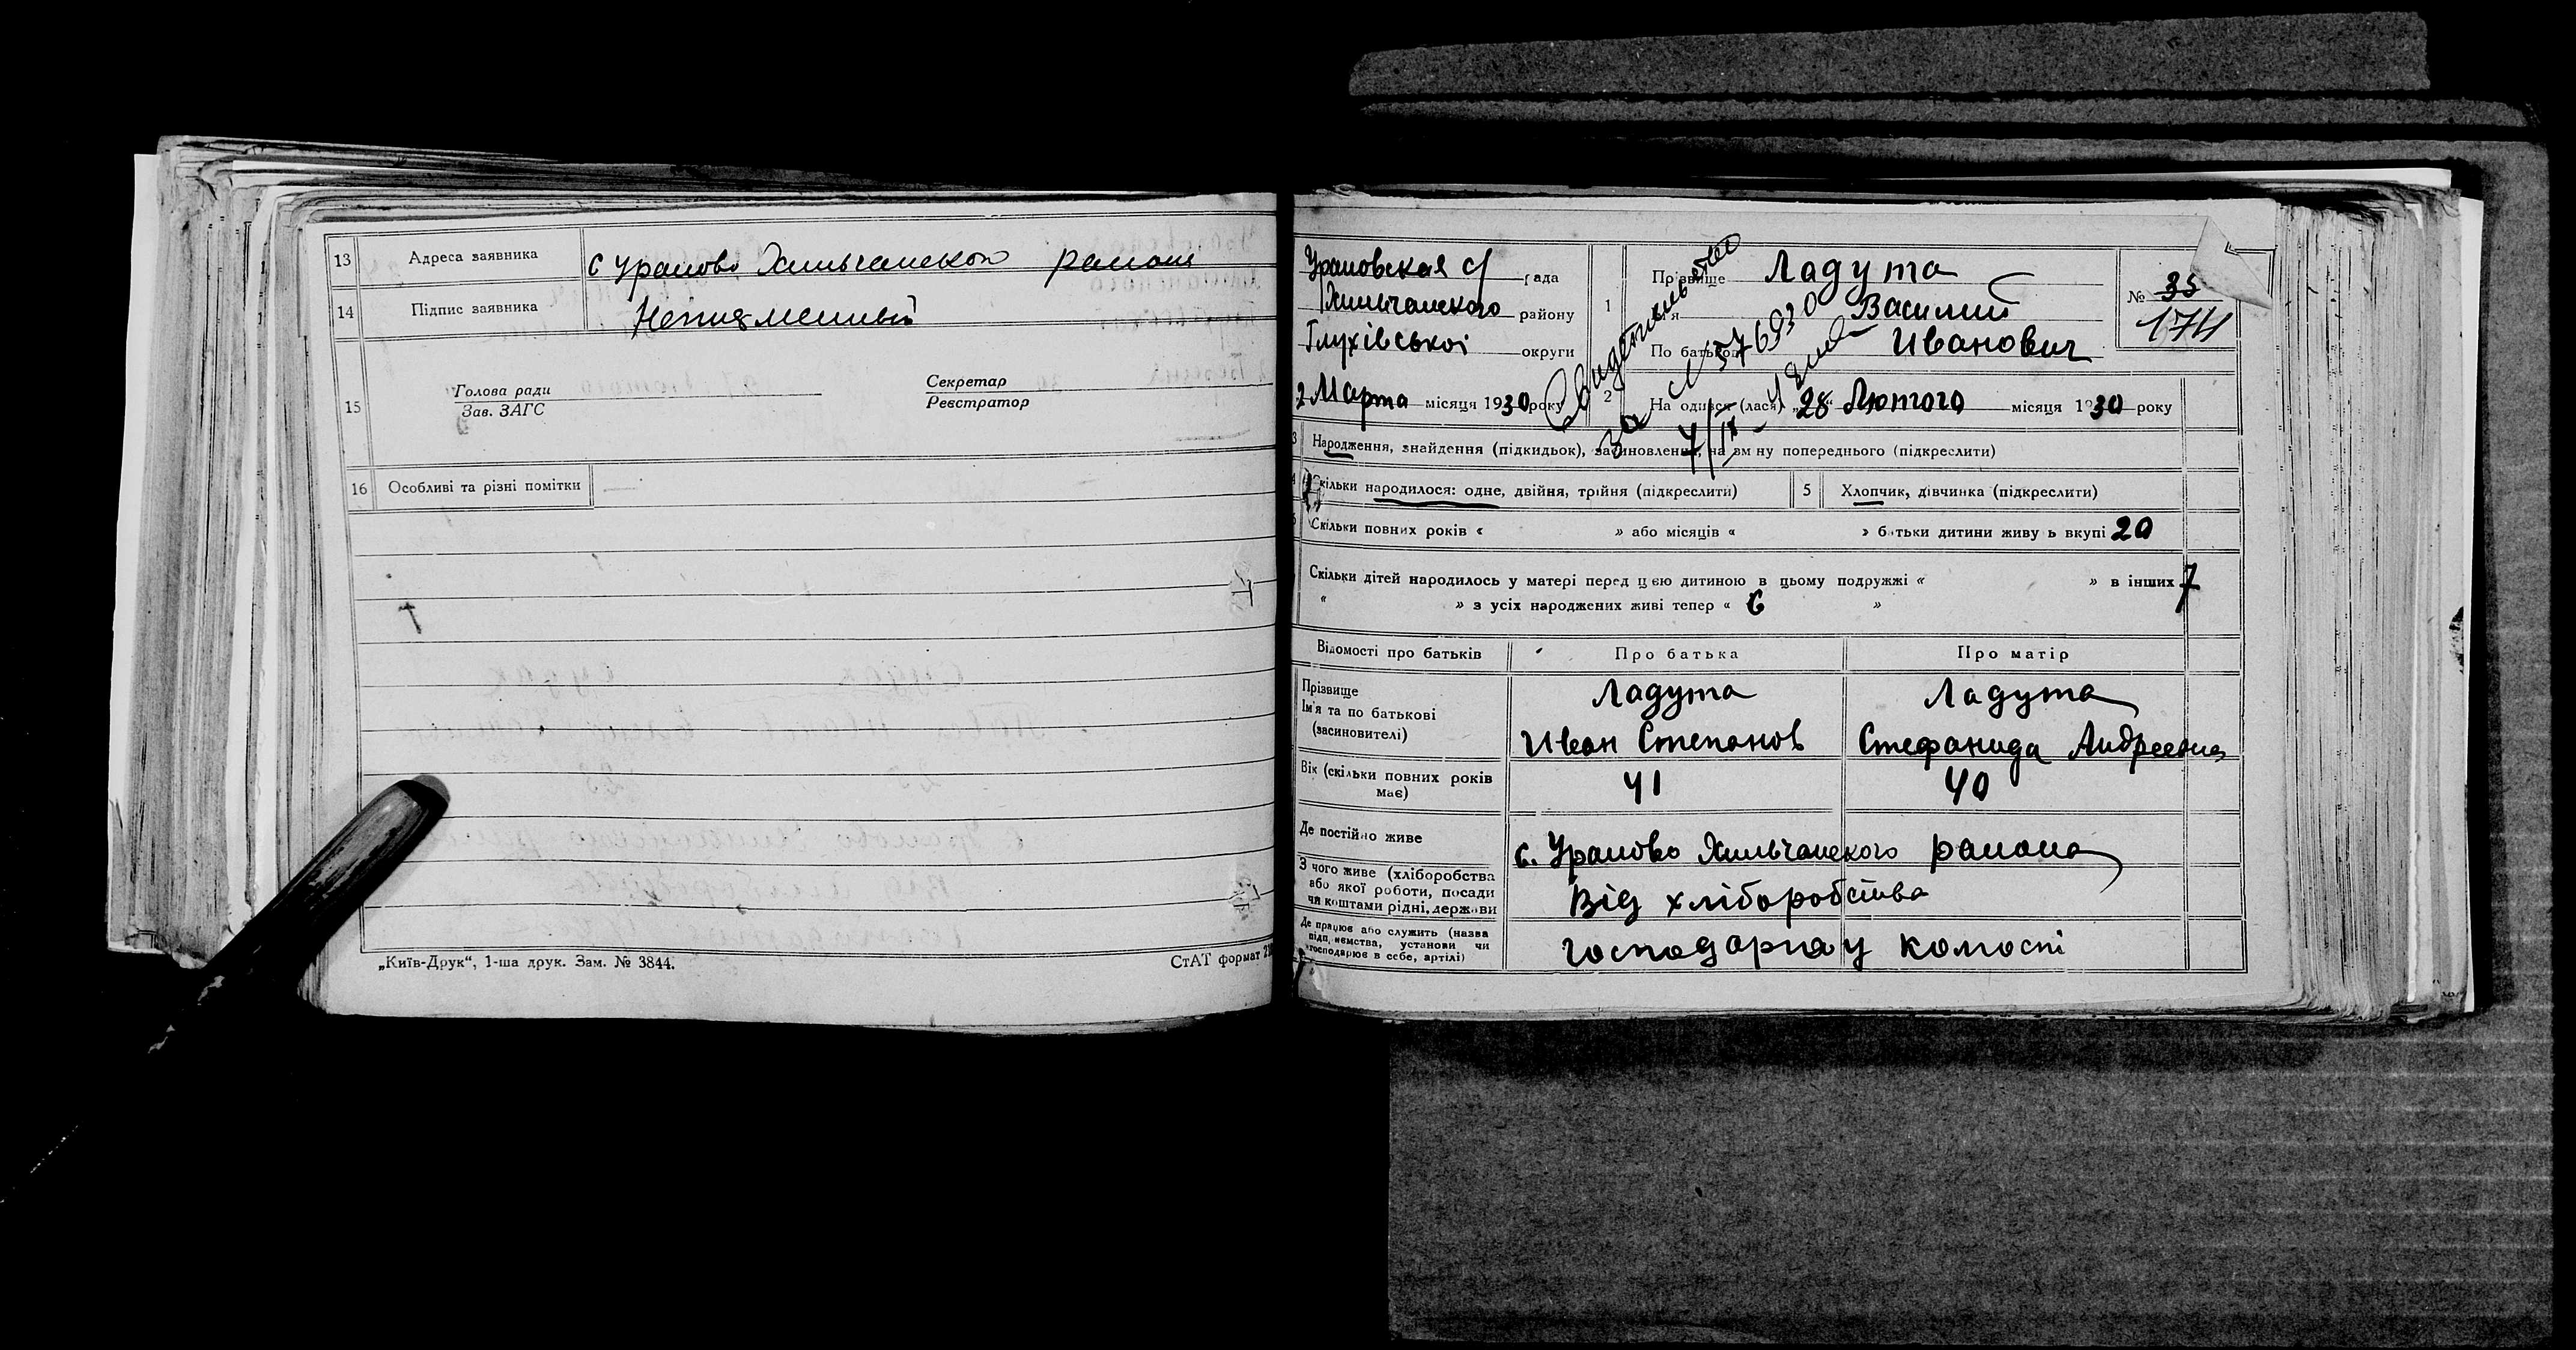 13 Адреса заявника с Ураново Хильчанского района
14 Підпис заявника Неписменный
15 Голова ради
Зав. ЗАГС
Секретар
Реєстратор
16 Особливі та різні помітки —
„Київ-Друк“, 1-ша друк. Зам. № 3844.
СтАТ формат
Урановская с/ рада
Хильчанского району
Глухівської округи
2 Марта місяця 1930 року
1 Прізвище Ладута
Ім'я Василий
По батькові Иванович
№ 35
174
Свидетельство
за № 576930
2 На одився (лася) „28“ Лютого місяця 1930 року
3 Народження, знайдення (підкидьок), засиновлення, на вм ну попереднього (підкреслити)
4 Скільки народилося: одне, двійня, трійня (підкреслити) 5 Хлопчик, дівчинка (підкреслити)
Скільки повних років « » або місяців « » батьки дитини живу ь вкупі 20
Скільки дітей народилось у матері перед цією дитиною в цьому подружжі « » в інших 7
« » з усіх народжених живі тепер « 6 »
Відомості про батьків Про батька Про матір
Прізвище Ладута Ладута
Ім'я та по батькові
(засиновителі) Иван Степанов Стефанида Андреевна
Вік (скільки повних років має) 41 40
Де постійно живе с. Ураново Хильчанского района
З чого живе (хліборобства
або якої роботи, посади
чи коштами рідні, держави Від хліборобства
Де працює або служить (назва
підп иємства, установи чи
господарює в себе, артілі)